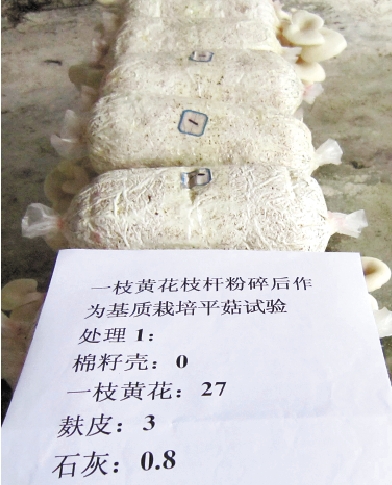 1
一枝黄花枝杆粉碎后作
为基质栽培平菇试验
处理1：
棉籽壳：0
一枝黄花：27
麸皮：3
石灰：0.8